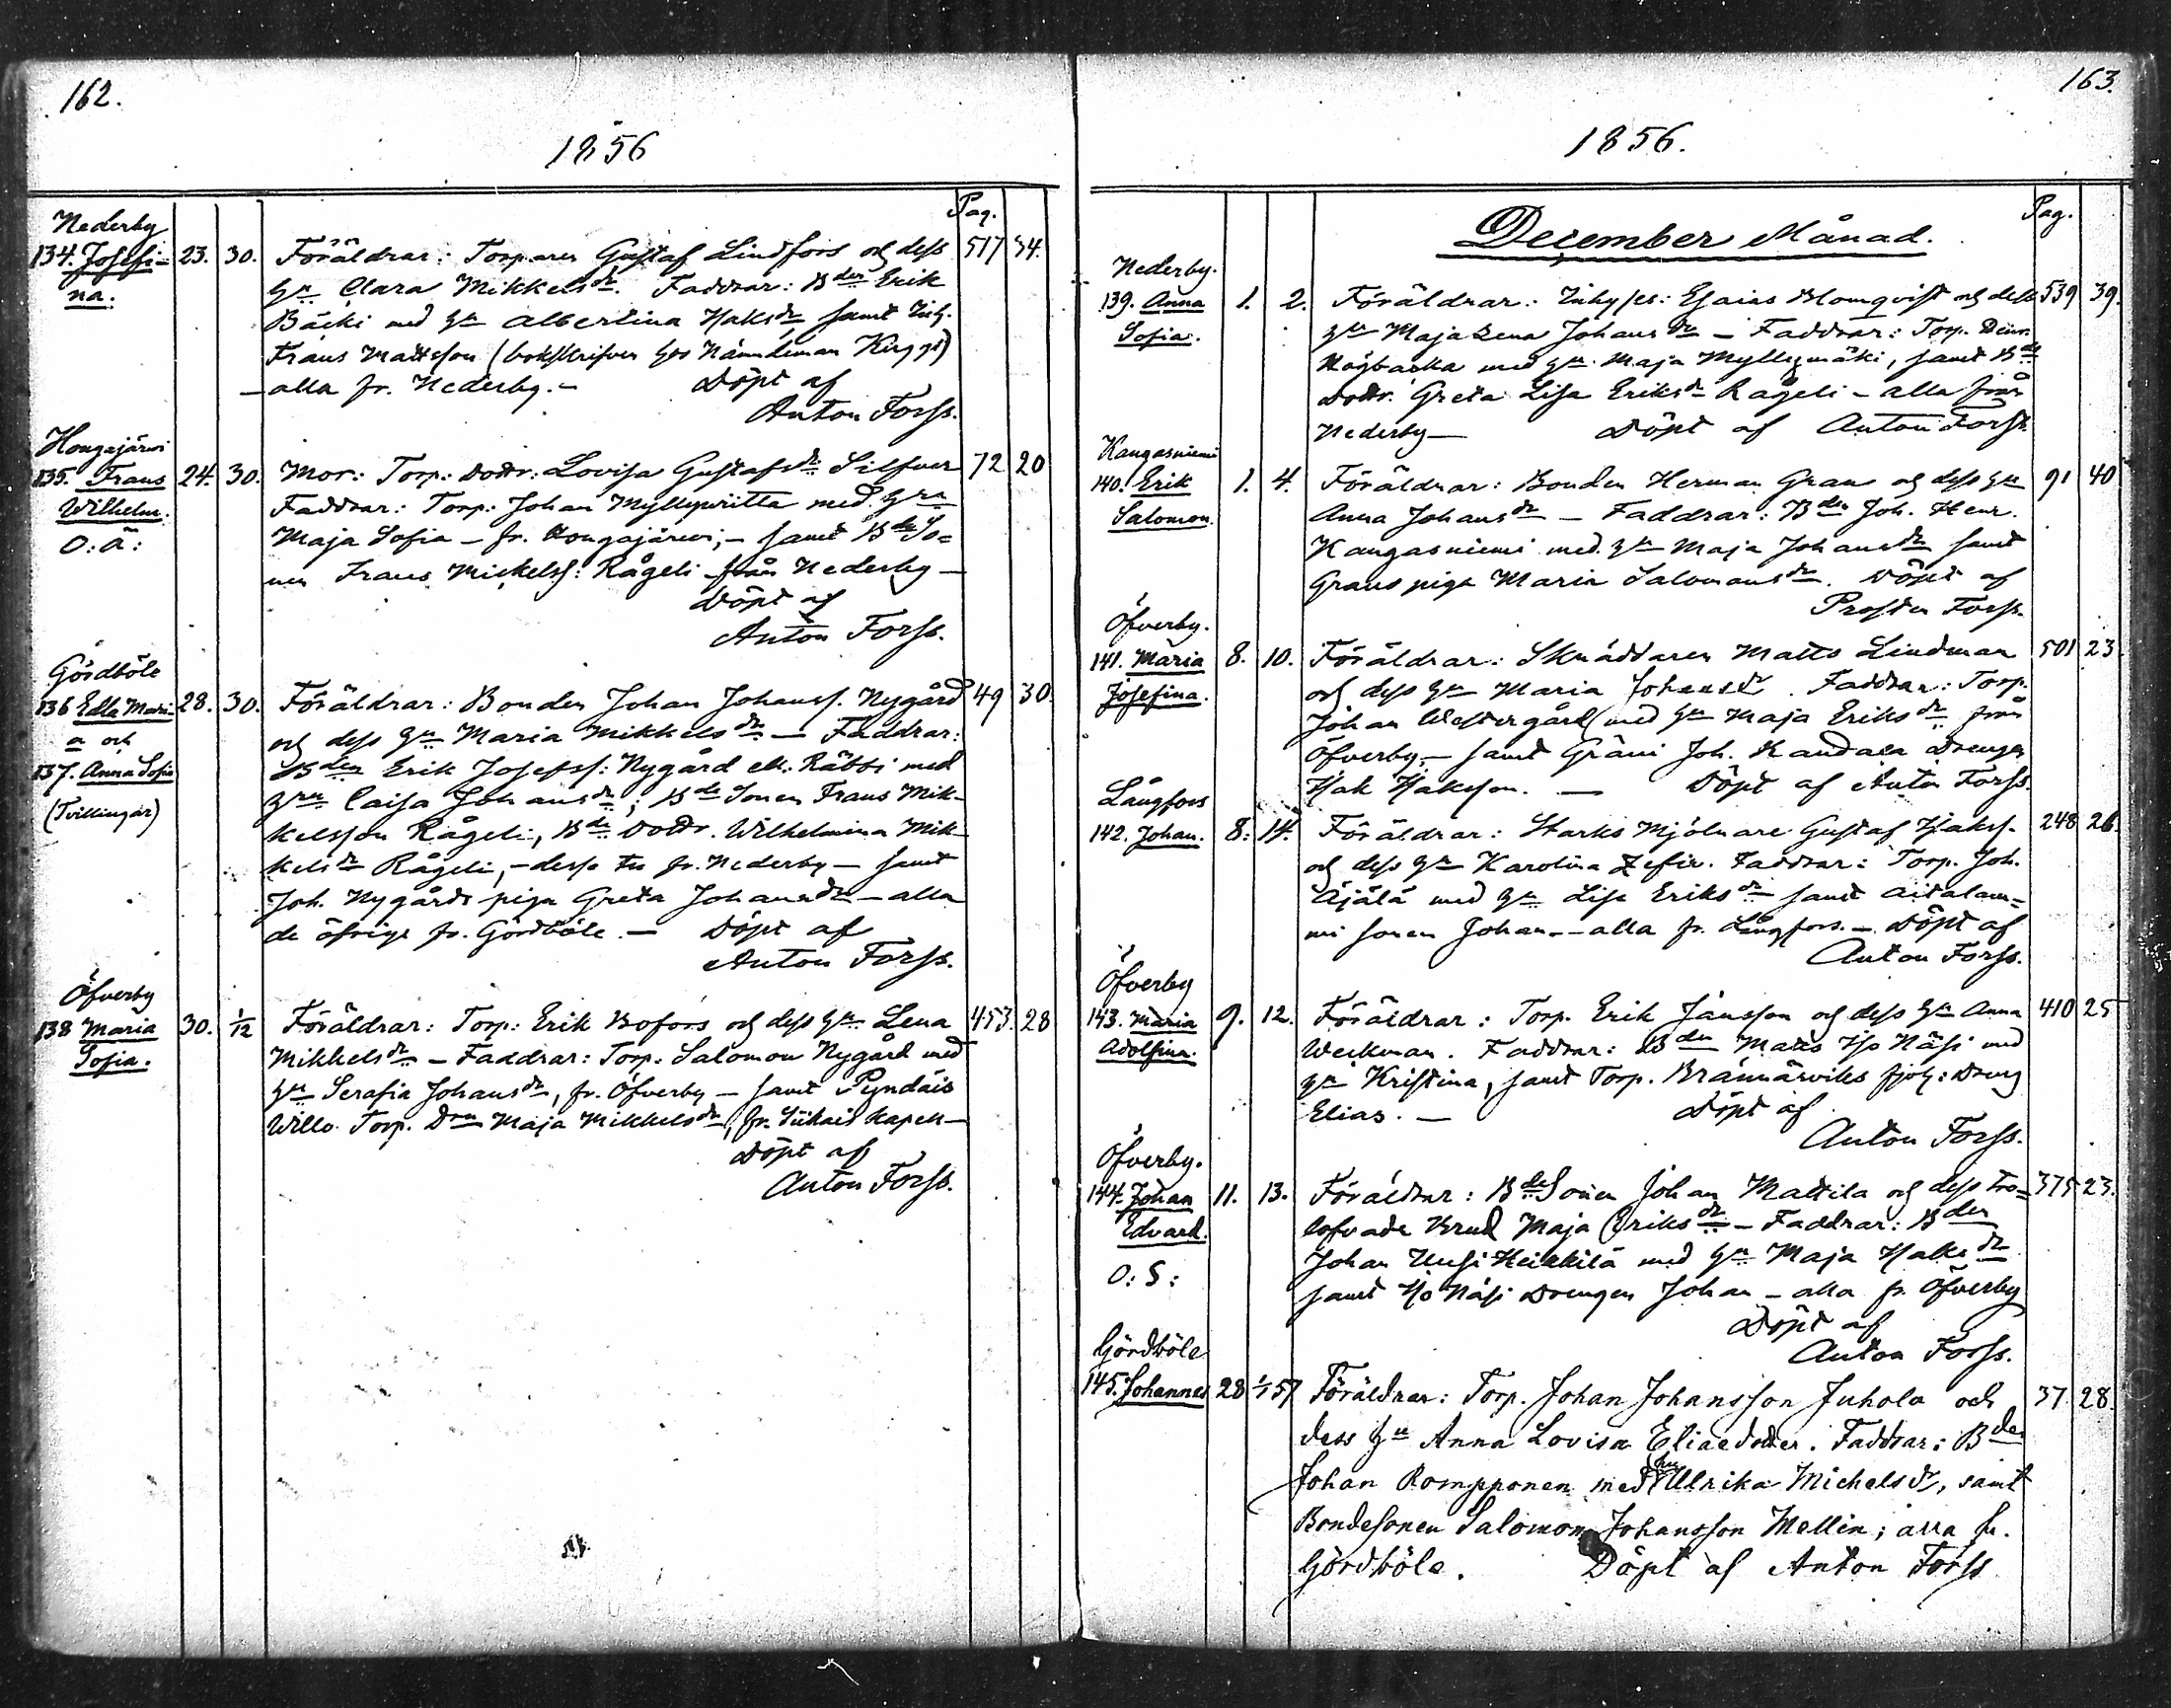 162.
1856
Pag.
Nederby
134. Josefi- 23. 30. Föräldrar: Torparen Gustaf Lindfors och dess 517 34.
na. hu Clara Mikkelsdr. Faddrar: Bden Erik
Bäcki med hu Albertina Isaksdr, samt Inh.
Frans Mattsson (bokskrifver hos Nämndeman
alla fr. Nederby. - Döpt af
Anton Forss.
Hongajärvi
135. Frans 24. 30. Mor: Torp: Dottr: Lovisa Gustafsdr Silfver 72 20
Wilhelm. Faddrar: Torp: Johan Myllypiitta med hru
O: Ä: Maja Sofia - fr. Hongajärvi, - samt Bde So=
nen Frans Mickelss: Rågeli från Nederby -
Döpt af
Anton Forss.
Gördböle
136 Edla Mari- 28. 30. Föräldrar: Bonden Johan Johanss. Nygård 49 30.
a och och dess hu Maria Mikkelsdr - Faddrar:
137. Anna Sofia Bden Erik Josefss: Nygård ell. Räbbi med
(Tvillingar) hru Caisa Johansdr; Bde Sonen Frans Mik-
kelsson Rågeli, Bde Dottr. Wilhelmina Mik-
kelsdr Rågeli, - desse tu fr. Nederby - samt
Joh. Nygårds piga Greta Johansdr - alla
de öfrige fr. Gördböle. - Döpt af
Anton Forss.
Öfverby
138 Maria 30. 1/12 Föräldrar: Torp: Erik Bofors och dess hu Lena 453. 28
Sofia. Mikkelsdr - Faddrar: Torp: Salomon Nygård med
hu Serafia Johansdr, fr. Öfverby - samt Pyndäis
Wille Torp. Dran Maja Mikkelsdr, fr. Siikais kapell -
Döpt af
Anton Forss.
163.
1856.
December Månad.
Pag.
Nederby.
139. Anna 1. 2. Föräldrar: Inhyses: Esaias Blomqvist och dess 539 39.
Sofia. hu Maja Lena Johansdr - Faddrar: Torp.
Högbacka med hu Maja Myllymäki, samt Bde
Dottr. Greta Lisa Eriksdr Rågeli - alla från
Nederby - Döpt af Anton Forss.
Kangasniemi
140. Erik 1. 4. Föräldrar: Bonden Herman Gran och dess hu 91 40
Salomon. Anna Johansdr - Faddrar: Bden Joh. Henr.
Kangasniemi med hu Maja Johansdr samt
Grans piga Maria Salomonsdr. Döpt af
Prosten Forss.
Öfverby.
141. Maria 8. 10. Föräldrar: Skräddaren Matts Lindman 501 23.
Josefina. och dess hu Maria Johansdr. Faddrar: Torp.
Johan Westergård med hu Maja Eriksdr från
Öfverby, - samt Gräni Joh. Drengen
Isak Isaksson. - Döpt af Anton Forss.
Långfors
142. Johan. 8. 14. Föräldrar: Starks Mjölnare Gustaf Isakss. 248 26.
och dess hu Karolina Zefir. Faddrar: Torp. Joh.
Äjälä med hu Lisa Eriksdr samt Aitalam=
mi sonen Johan - alla fr. Långfors. - Döpt af
Anton Forss.
Öfverby
143. Maria 9. 12. Föräldrar: Torp. Erik Jansson och dess hu Anna 410 25
Adolfina. Weckman. Faddrar: Bden Matts Iso Näsi med
hu Kristina, samt Torp. Brännärviks
Elias. - Döpt af
Anton Forss.
Öfverby.
144. Johan 11. 13. Föräldrar: Bde Sonen Johan Mattila och dess tro= 375 23.
Edvard. lofvade Brud Maja Eriksdr - Faddrar: Bden
O: S: Johan Uusi Heikkilä med hu Maja Isaksdr
samt Iso Näsi Drengen Johan - alla fr. Öfverby
Döpt af
Anton Forss.
Gördböle
145. Johannes 28 1/1 57 Föräldrar: Torp. Johan Johansson Juhola och 37 28.
dess hu Anna Lovisa Eliaedotter. Faddrar: Bden
Johan Rompponen med hu Ulrika Michelsdr, samt
Bondesonen Salomon Johansson Mellin; alla fr.
Gördböle. Döpt af Anton Forss